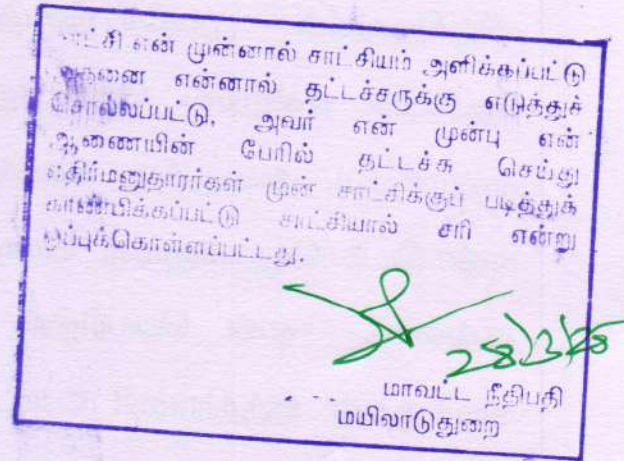 சாட்சி என் முன்னால் சாட்சியம் அளிக்கப்பட்டு
அதனை என்னால் தட்டச்சருக்கு எடுத்துச்
சொல்லப்பட்டு, அவர் என் முன்பு என்
ஆணையின் பேரில் தட்டச்சு செய்து
எதிர்மனுதாரர்கள் முன் சாட்சிக்குப் படித்துக்
காண்பிக்கப்பட்டு சாட்சியால் சரி என்று
ஒப்புக்கொள்ளப்பட்டது.
28/3/25
மாவட்ட நீதிபதி
மயிலாடுதுறை